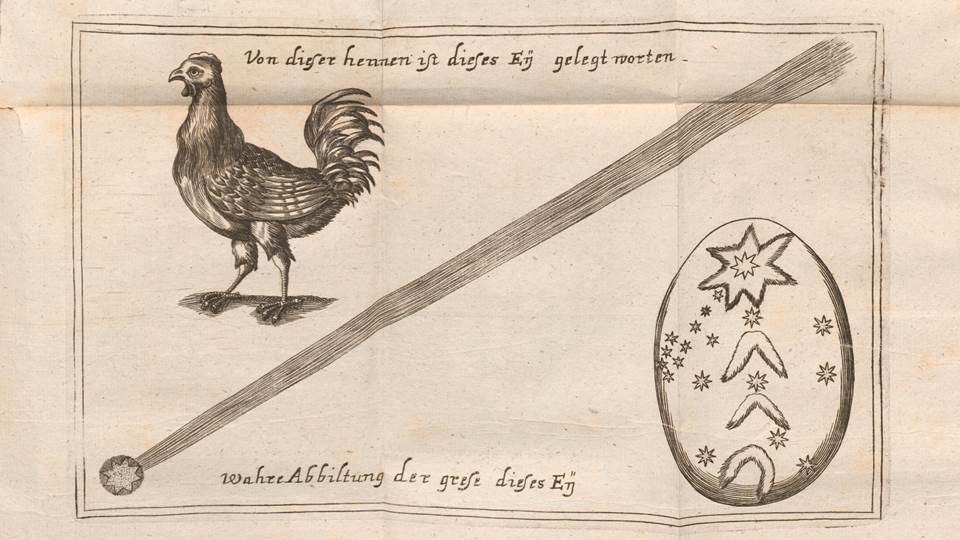 Von dieser hennen ist dieses Eÿ gelegt worten.
wahre Abbiltung der grese dieses Eÿ